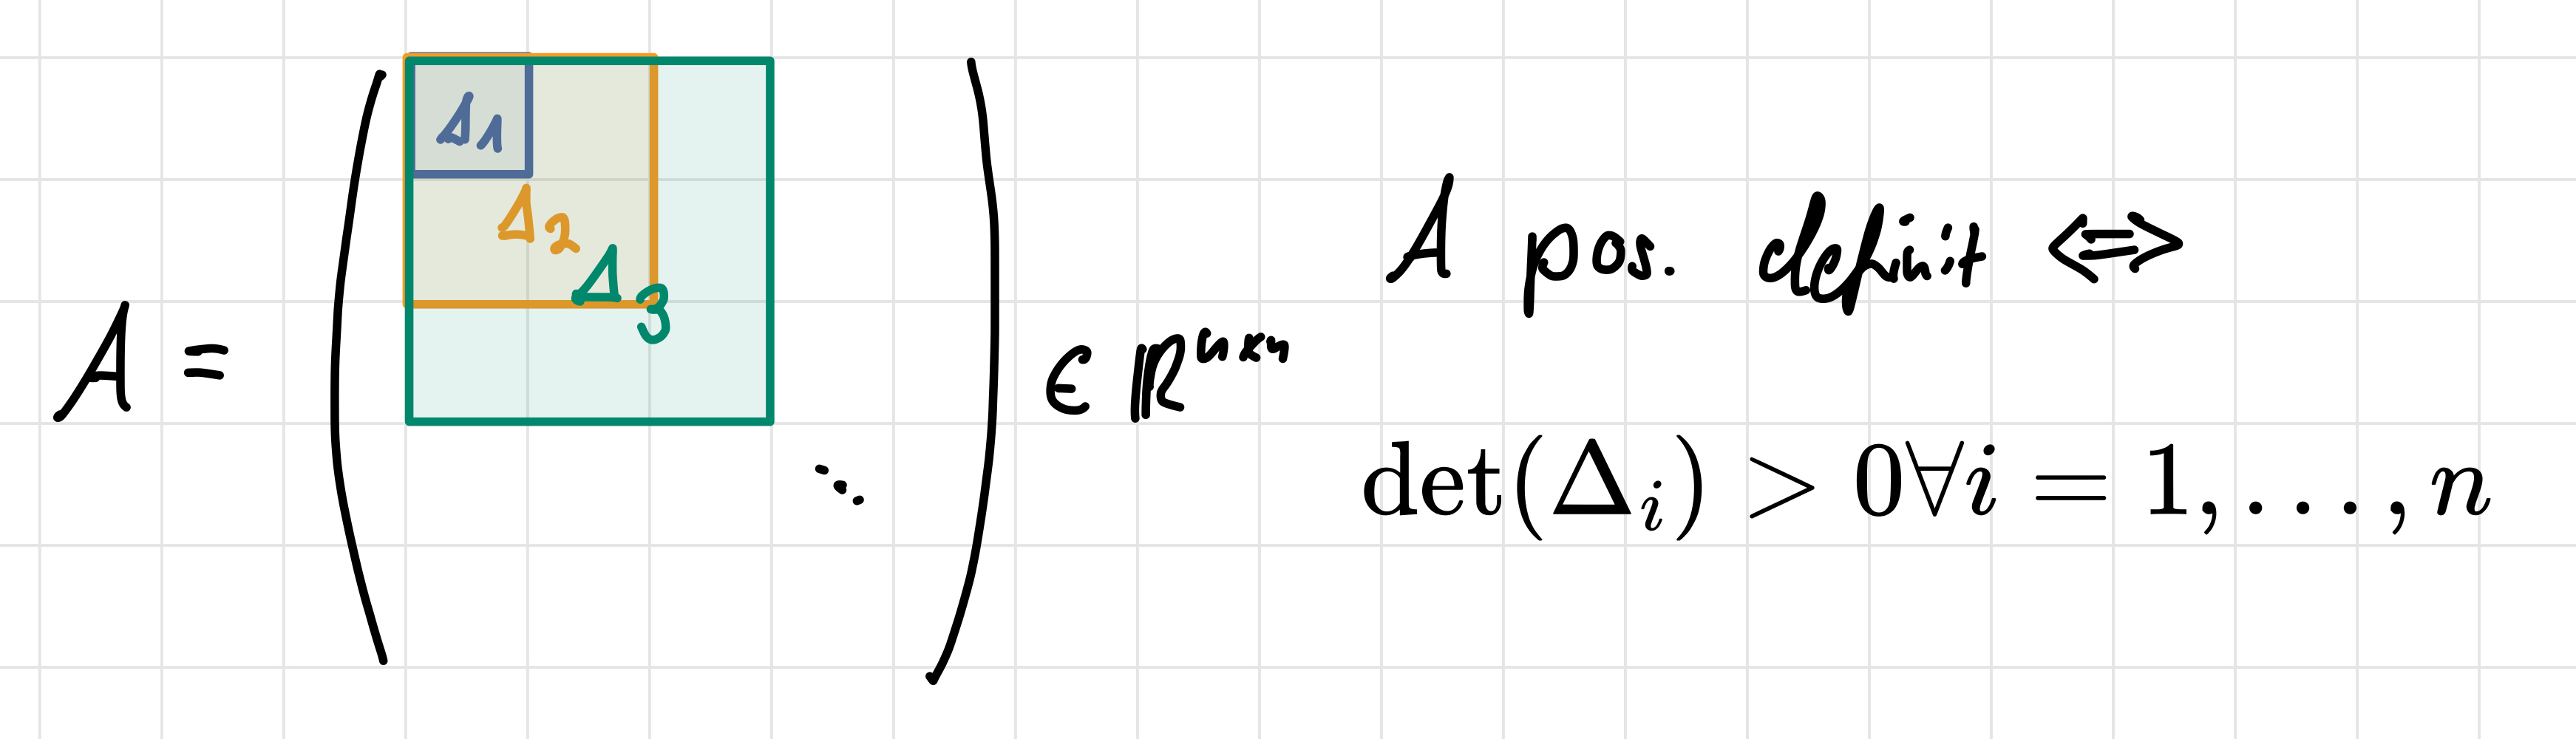 Δ1
Δ2
Δ3
A = ( ⋱ ) ∈ ℝⁿˣⁿ
A pos. definit ⇔
det(Δᵢ) > 0∀i = 1, . . . , n